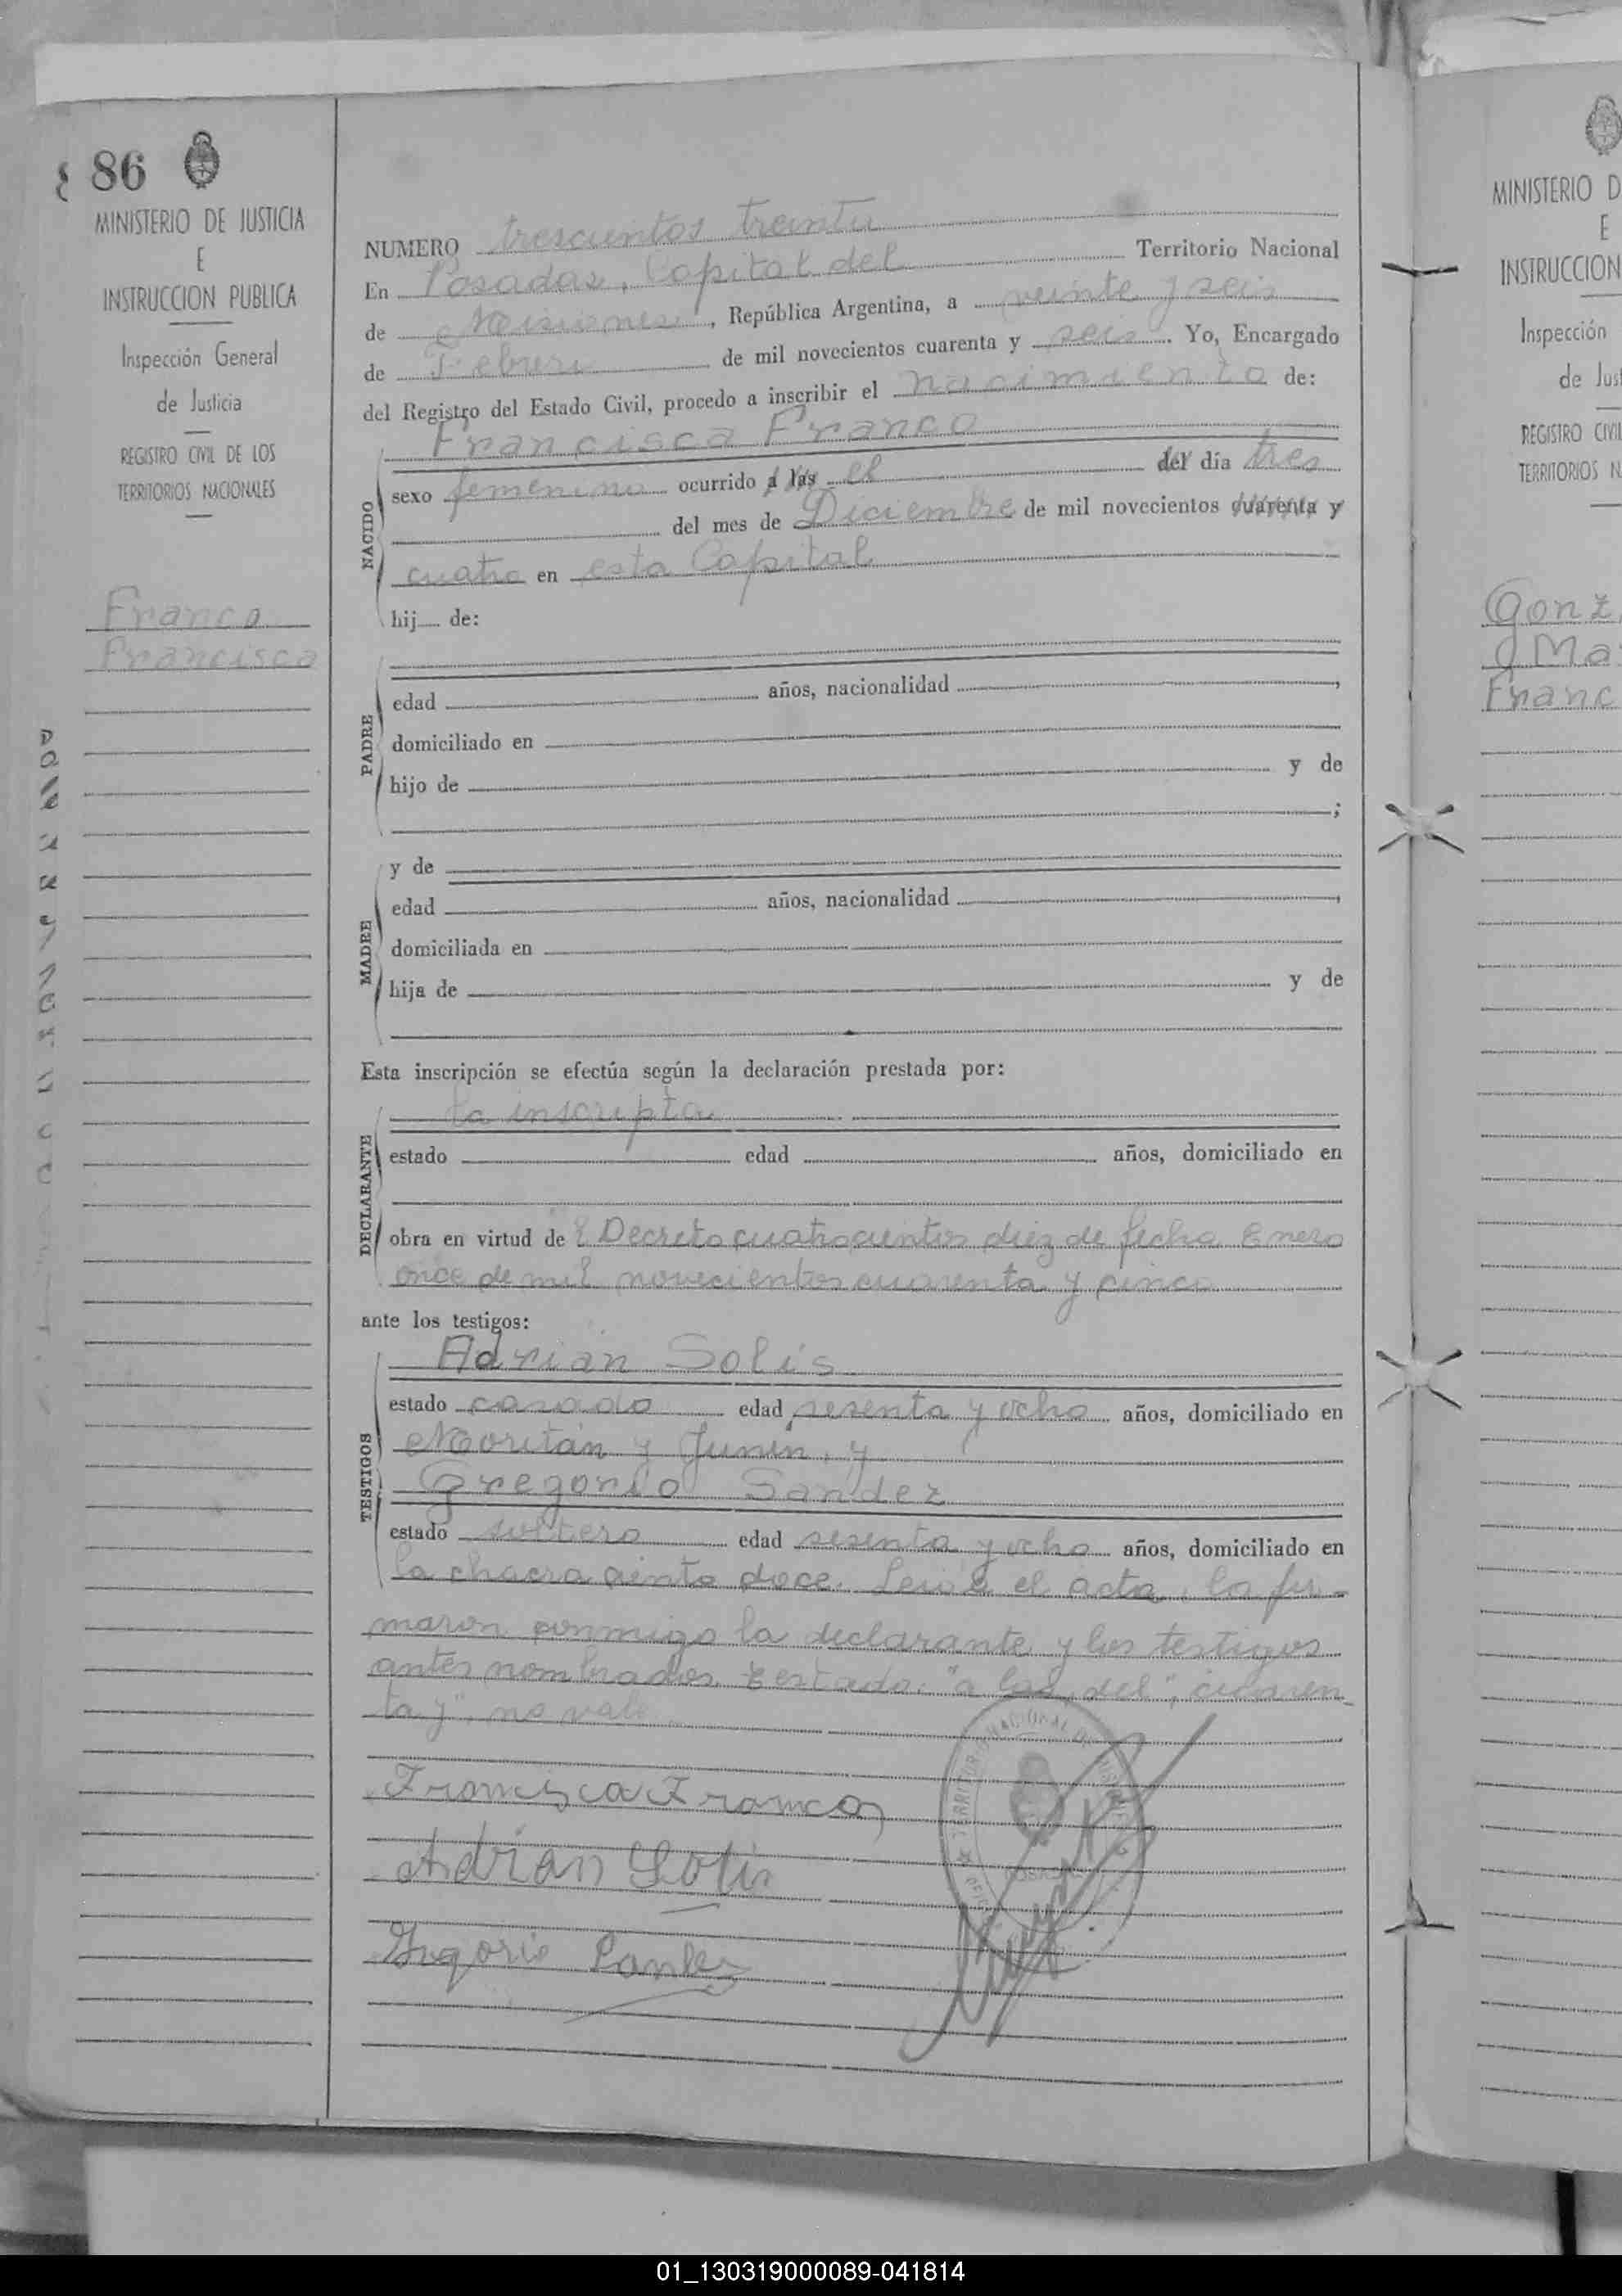 86
MINISTERIO DE JUSTICIA
E
INSTRUCCION PUBLICA
Inspección General
de Justicia
REGISTRO CIVIL DE LOS
TERRITORIOS NACIONALES
Franco
Francisca
NUMERO trescientos treinta
En Posadas, Capital del Territorio Nacional
de Misiones, República Argentina, a veinte y seis
de Febrero de mil novecientos cuarenta y seis. Yo, Encargado
del Registro del Estado Civil, procedo a inscribir el nacimiento de:
Francisca Franco
NACIDO
sexo femenino ocurrido a las el del día tres
del mes de Diciembre de mil novecientos cuarenta y
cuatro en esta Capital
hij de:
PADRE
edad años, nacionalidad ,
domiciliado en
hijo de y de
;
MADRE
y de
edad años, nacionalidad ,
domiciliada en
hija de y de
Esta inscripción se efectúa según la declaración prestada por:
la inscripta
DECLARANTE
estado edad años, domiciliado en
obra en virtud de l Decreto cuatrocientos diez de fecha Enero
once de mil novecientos cuarenta y cinco
ante los testigos:
Adrian Solis
TESTIGOS
estado casado edad sesenta y ocho años, domiciliado en
Moritán y Junin, y
Gregorio Sandez
estado soltero edad sesenta y ocho años, domiciliado en
la chacra ciento doce. Leida el acta, la fir-
maron conmigo la declarante y los testigos
antes nombrados. Testado: "a las, del", "cuaren-
ta y", no vale
Francisca Franco
Adrian Solis
Gregorio Sandez
TERRITORIO NACIONAL DE MISIONES
POSADAS
MINISTERIO D
E
INSTRUCCION
Inspección
de Jus
REGISTRO CIVIL
TERRITORIOS N
Gonz
Ma
Franc
01_130319000089-041814